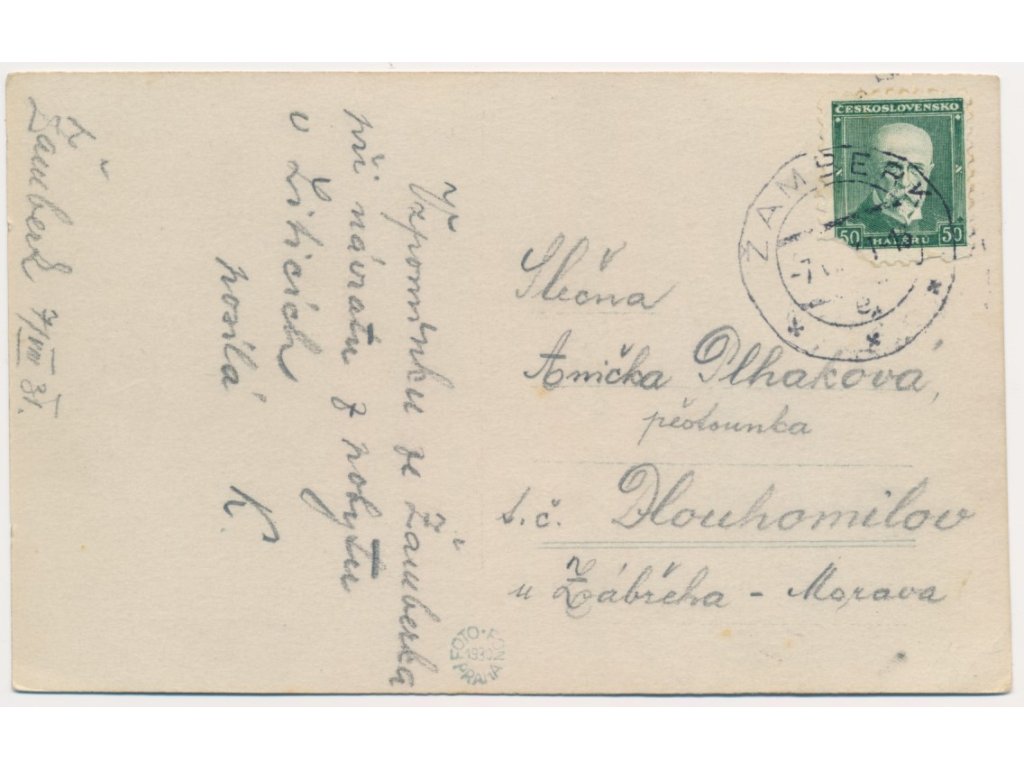 Žamberk 7/VIII 31.
Vzpomínku ze Žamberka
při návratu z pobytu
v Liticích
posílá
K.
ČESKOSLOVENSKO
50 HALÉŘŮ 50
ŽAMBERK
Slečna
Anička Plhaková,
pěstounka
t.č. Dlouhomilov
u Zábřeha - Morava
FOTO-FON
1930
PRAHA